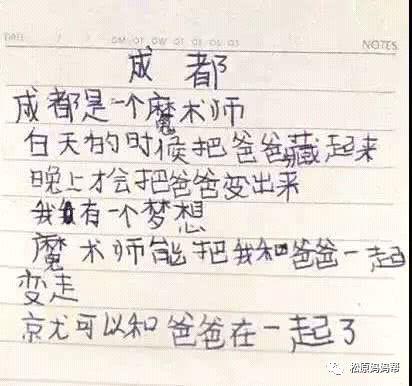 DATE / /
NOTES
成都
成都是一个魔术师
白天的时候把爸爸藏起来
晚上才会把爸爸变出来
我有一个梦想
魔术师能把我和爸爸一起
变走
京尤可以和爸爸在一起了
松原妈妈帮